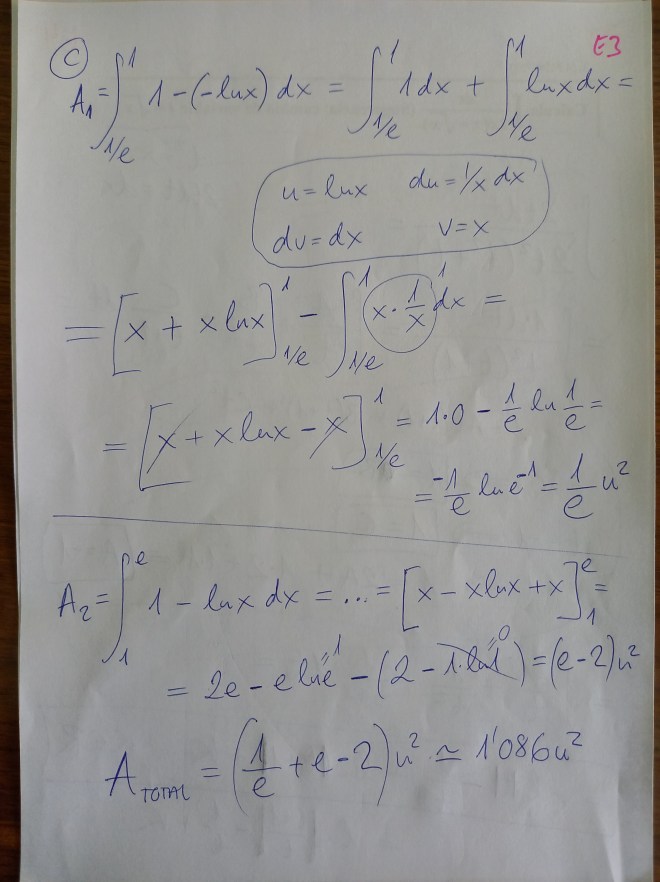 E3
C
A₁ = ∫_{1/e}^{1} 1 - (-lnx) dx = ∫_{1/e}^{1} 1dx + ∫_{1/e}^{1} lnxdx =
u = lnx du = 1/x dx
dv = dx v = x
= [x + x lnx]_{1/e}^{1} - ∫_{1/e}^{1} x · 1/x dx =
1
= [x + x lnx - x]_{1/e}^{1} = 1·0 - 1/e ln 1/e =
= -1/e ln e⁻¹ = 1/e u²
A₂ = ∫_{1}^{e} 1 - lnx dx = ... = [x - xlnx + x]_{1}^{e} =
= 2e - e lne⁼¹ - (2 - 1·ln1⁼⁰) = (e-2)u²
A_TOTAL = (1/e + e - 2) u² ≃ 1'086u²